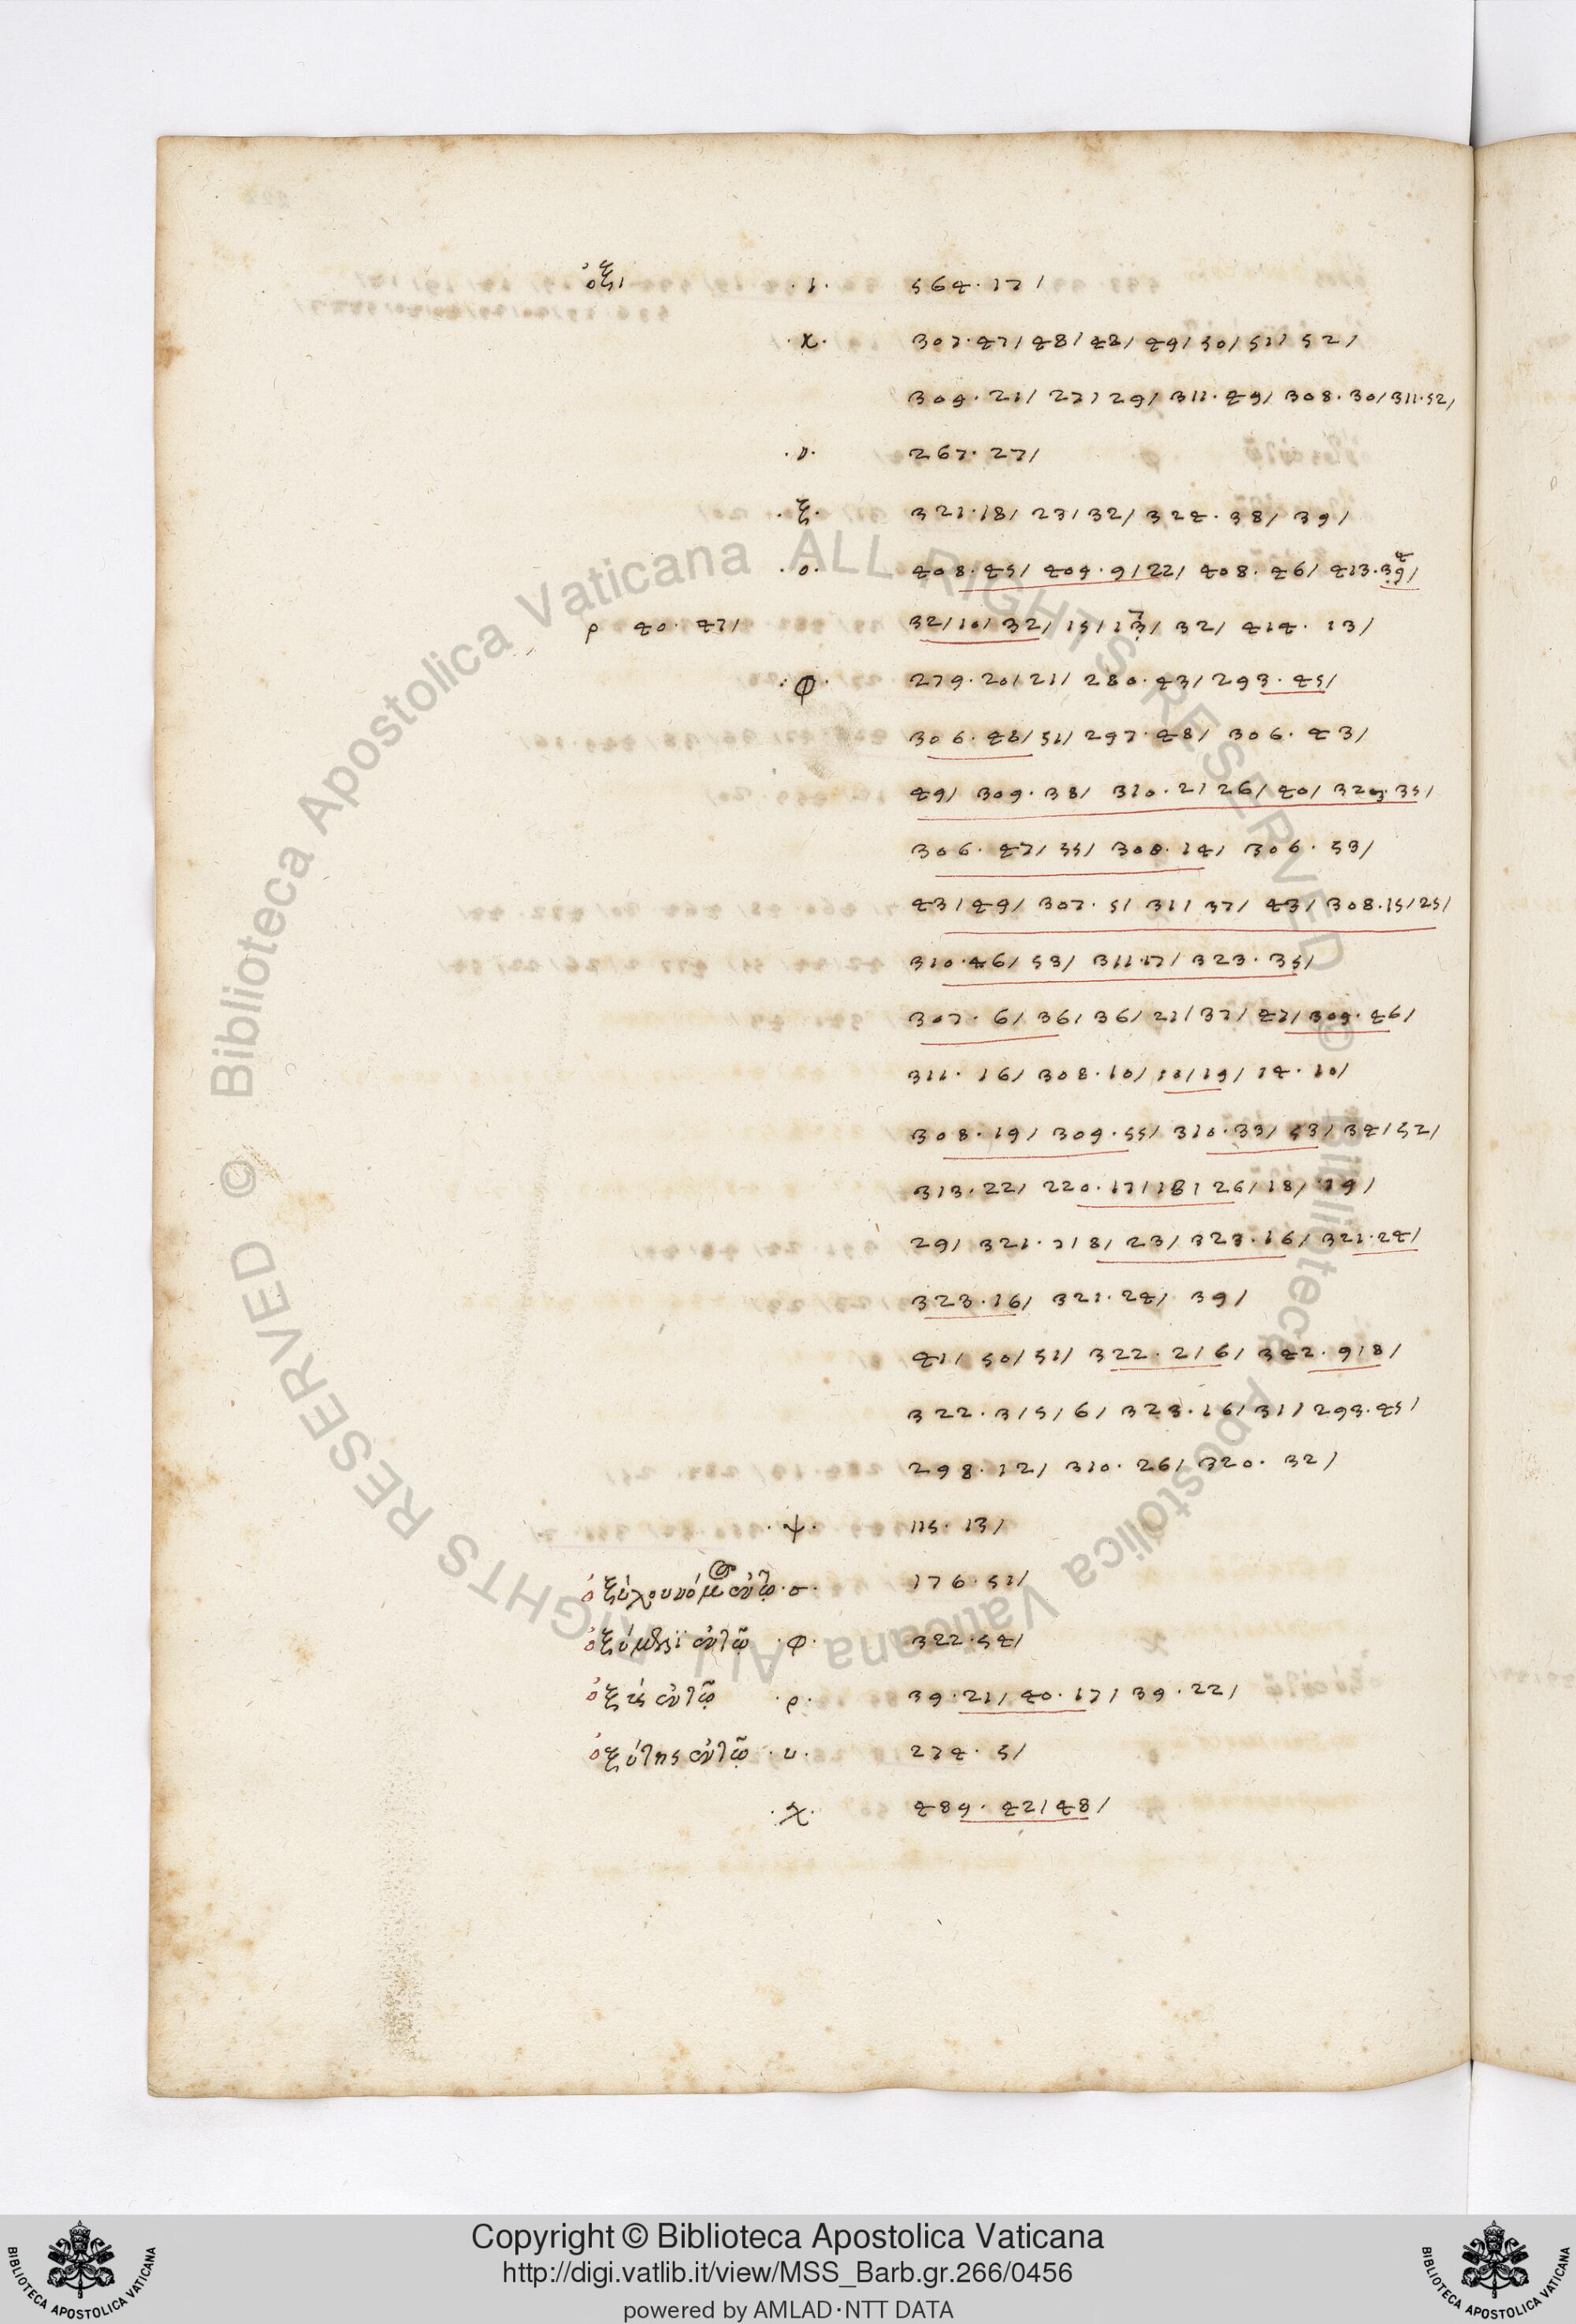 ὀξι · ι · 564 · 17 /
· κ · 307 · 47 / 48 / 48 / 49 / 50 / 51 / 52 /
309 · 21 / 27 / 29 / 311 · 49 / 308 · 30 / 311 · 52 /
· ν · 267 · 27 /
· ξ · 321 · 18 / 23 / 32 / 324 · 38 / 39 /
· ο · 408 · 45 / 409 · 9 / 22 / 408 · 46 / 413 · 39 /
ρ 40 · 47 / 32 / 10 / 32 / 15 / 13 / 32 / 414 · 13 /
· φ · 279 · 20 / 21 / 280 · 43 / 293 · 45 /
306 · 48 / 51 / 297 · 48 / 306 · 43 /
49 / 309 · 38 / 310 · 2 / 26 / 40 / 320 · 35 /
306 · 47 / 55 / 308 · 14 / 306 · 53 /
43 / 49 / 307 · 5 / 31 / 37 / 43 / 308 · 15 / 25 /
310 · 46 / 53 / 311 · 17 / 323 · 35 /
307 · 6 / 36 / 36 / 21 / 37 / 47 / 309 · 46 /
311 · 16 / 308 · 10 / 10 / 19 / 14 · 10 /
308 · 19 / 309 · 55 / 310 · 33 / 53 / 34 / 52 /
313 · 22 / 220 · 17 / 18 / 26 / 18 / 19 /
29 / 321 · 7 / 8 / 23 / 323 · 16 / 321 · 24 /
323 · 16 / 321 · 24 / 39 /
41 / 50 / 51 / 322 · 2 / 6 / 342 · 9 / 8 /
322 · 3 / 5 / 6 / 323 · 16 / 31 / 293 · 45 /
298 · 12 / 310 · 26 / 320 · 32 /
· ψ · 115 · 13 /
· σ · 176 · 51 /
· φ · 322 · 54 /
· ρ · 39 · 21 / 40 · 17 / 39 · 22 /
ὀξύτης · υ · 274 · 5 /
· χ · 489 · 42 / 48 /
Copyright © Biblioteca Apostolica Vaticana
http://digi.vatlib.it/view/MSS_Barb.gr.266/0456
powered by AMLAD·NTT DATA
BIBLIOTECA APOSTOLICA VATICANA
BIBLIOTECA APOSTOLICA VATICANA
© Biblioteca Apostolica Vaticana ALL RIGHTS RESERVED
© Biblioteca Apostolica Vaticana ALL RIGHTS RESERVED